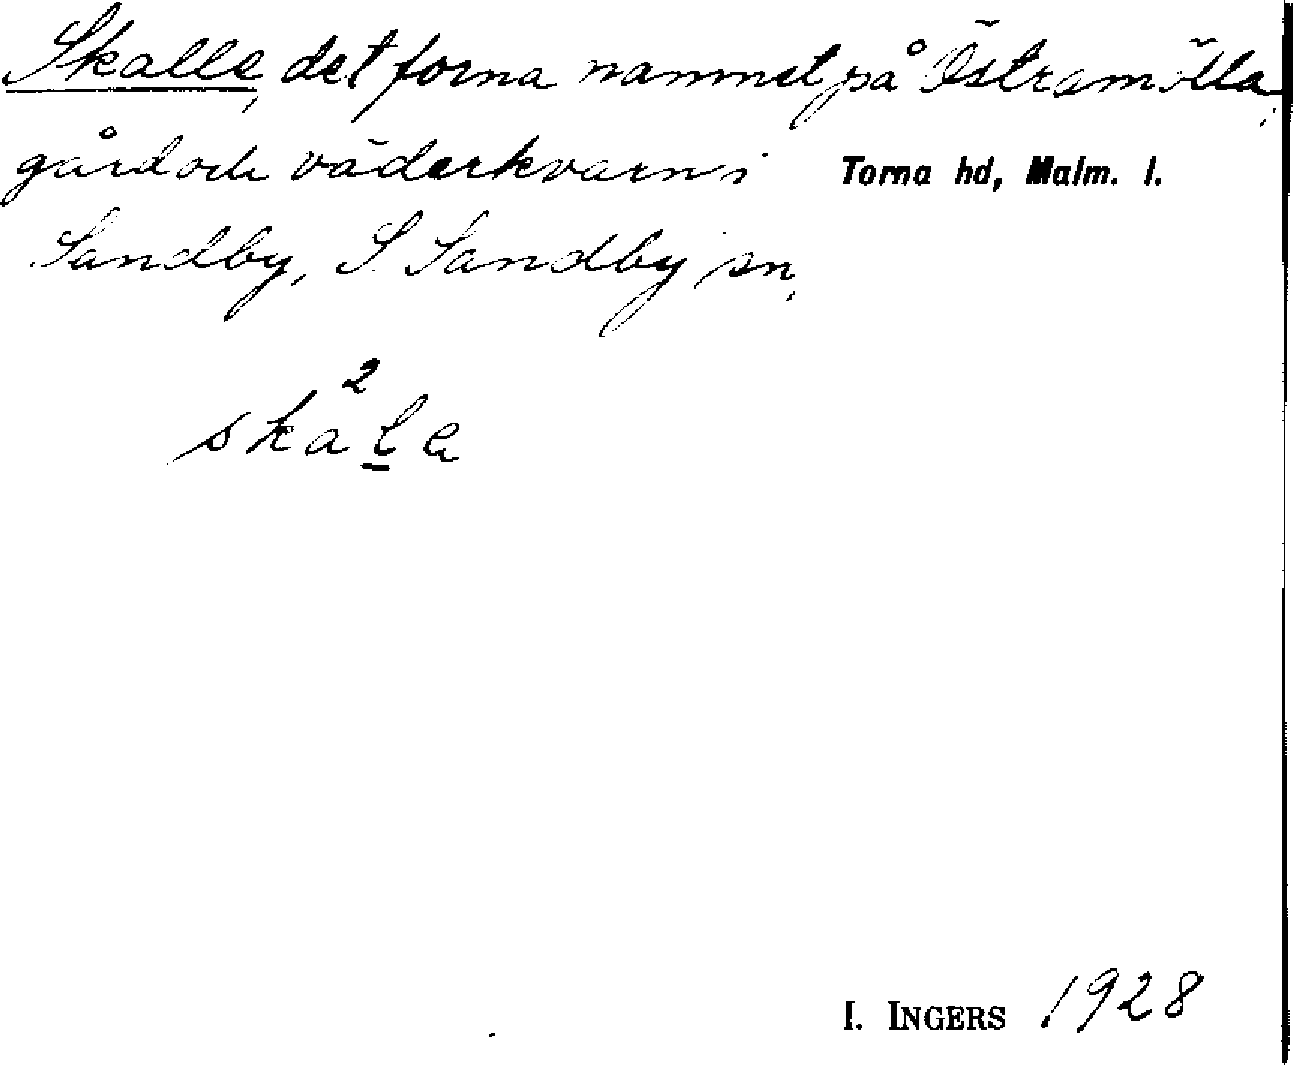 Skalle, det forna namnet på Östramölla,
gård och väderkvarn i Torna hd, Malm. l.
Sandby, S. Sandby sn.
ska²l̲ə
I. INGERS 1928